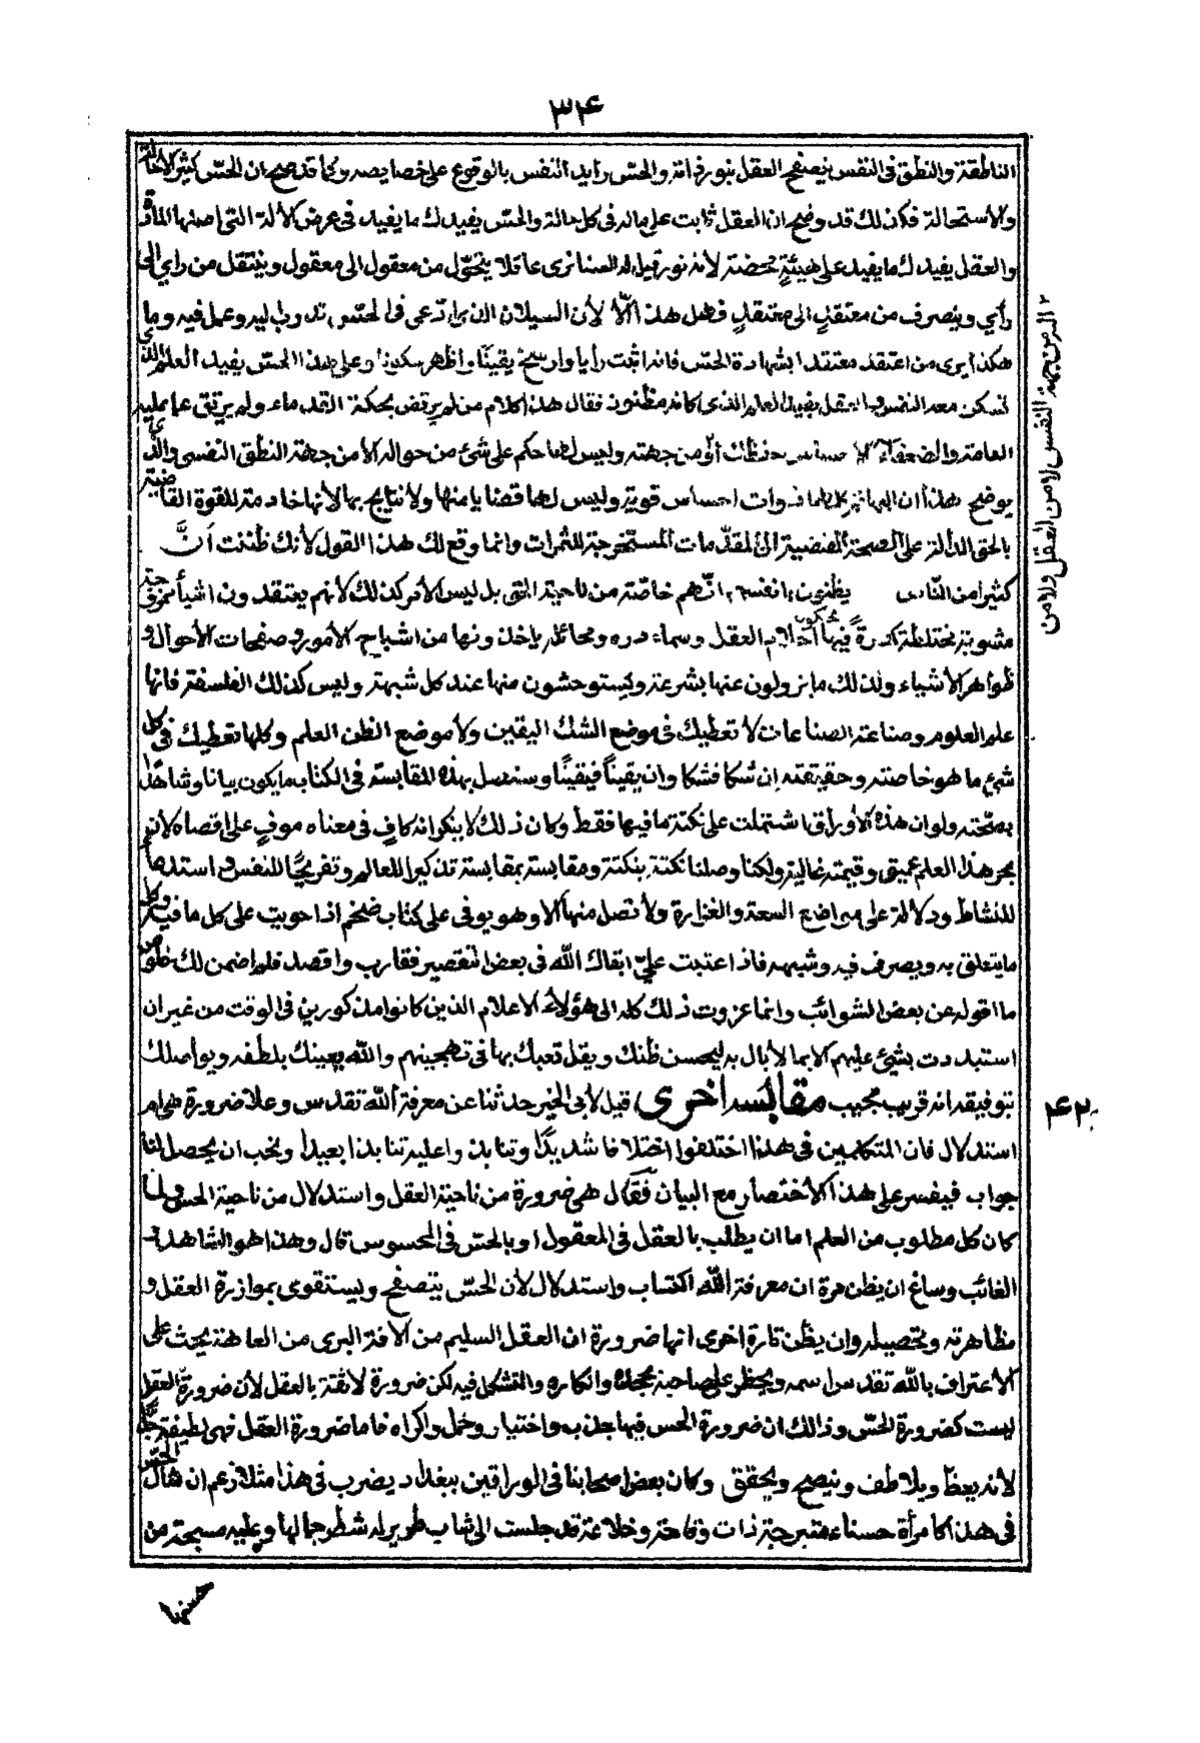 ۳۴
الناطقة والنطق فى النفس يتصفح العقل بنور ذاته والحسّ رأيد النفس بالوقوع على خصايصه وكما قد صح ان الحسّ كثير الاحالة
والاستحالة فكذلك قد وضح ان العقل ثابت على ماله فى كل حالة والحسّ يفيدك ما يفيد فى عرض الآلة التى اصلها المادة
والعقل يفيدك ما يفيد على هيئةٍ محضة لأنه نور قيل له السنا نرى عاقلا يتحوّل من معقول الى معقول وينتقل من رأي الى
رأي وينصرف من معتقدٍ الى معتقدٍ فقال هذا لأن السيلان الذى تدعى فى الحسّ قد دب اليه وعمل فيه وما
هكذا يرى من اعتقد معتقدا بشهادة الحسّ فانه اثبت رأيا وارسخ يقينًا واظهر سكونا وعلى هذا الحسّ يفيد العلم الذى
تسكن معه النفس والعقل يفيد العلم الذى كانه مظنون فقال هذا كلام من لم يرتض بحكمة القدماء ولم يرتق عما عليه
العامة والضعفاء الاحساس حفظك الله من جهته وليس لها حكم على شئ من حواله الا من جهة النطق النفسى والذى
يوضح هذا ان البهائم كلها ذوات احساس قوية وليس لها قضايا منها ولا نتايج بها لأنها خادمة للقوة القاضية
بالحق الدالة على الصحة المفضية الى المقدّمات المستخرجة للثمرات وانما وقع لك هذا القول لأنك ظننت أنَّ
كثيرا من النّاس يظنون بانفسهم انّهم خاصّة من ناحية التى بل ليس الأمر كذلك لأنهم يعتقدون اشيأ مخروجة
مشوبة مختلطة كدرة فيها العقل وسماء دره ومخائله ياخذونها من اشباح الأمور وصفحات الأحوال و
ظواهر الأشياء ولذلك ما يزولون عنها بشرعة ويستوحشون منها عند كل شبهة وليس كذلك الفلسفة فانها
علم العلوم وصناعة الصناعات لا تعطيك فى موضع الشك اليقين ولا موضع الظن العلم وكلها تعطيك فى كل
شئ ما هو خاصته وحقيقته إن شكا فشكا وان يقيناً فيقينًا وسنصل بهذه المقابسة فى الكتاب ما يكون بيانا وشاهدا
بصحته ولو ان هذه الأوراق اشتملت على نكتة ما فيها فقط وكان ذلك لا ينكر انه كافٍ فى معناه موفٍ على اقصاه لأنّ
بحر هذا العلم عميق وقيمته غالية ولكنا وصلنا نكتة بنكتة ومقابسة بمقابسة تذكيرا للعالم وتفريجًا للنفس واستدعا
للنشاط ودلالة على مواضع السعة والغزارة ولا تصل منها الا وهو يوفى على كتاب ضخم اذا حويت على كل ما فيه وكل
ما يتعلق به ويصرف فيه وشبهه فاذا عتبت عليّ ابقاك الله فى بعض التقصير فقارب واقصد فلم اضمن لك خلوص
ما اقوله عن بعض الشوائب وانما عزوت ذلك كله الى هؤلاء الاعلام الذين كانوا مذكورين فى الوقت من غير ان
استبددت بشئ عليهم الا بما لا بال به ليحسن ظنك ويقل تعبك بها فى تهجينهم والله يعينك بلطفه ويواصلك
بتوفيقه انه قريب مجيب مقابسه اخرى قيل لأبى الخير حدثنا عن معرفة الله تقدس وعلا ضرورة هى ام
استدلال فان المتكلمين فى هذا اختلفوا اختلافا شديدًا وتنابذوا عليه تنابذا بعيدا ونحب ان يحصل لنا
جواب فيفسر على هذا الأختصار مع البيان فقال هى ضرورة من ناحية العقل واستدلال من ناحية الحس ولما
كان كل مطلوب من العلم اما ان يطلب بالعقل فى المعقول او بالحسّ فى المحسوس قال وهذا هو الشاهد
الغائب وساغ ان يظن مرة ان معرفة الله اكتساب واستدلال لأن الحسّ يتصفح ويستقوى بموازرة العقل و
مظاهرته وتحصيله وان يظن تارة اخرى انها ضرورة ان العقل السليم من الآفة البرى من العاهة يحث على
الاعتراف بالله تقدس اسمه ويحظر على صاحبه جحده وانكاره والتشكك فيه لكن ضرورة لائقة بالعقل لأن ضرورة العقل
ليست كضرورة الحسّ وذالك ان ضرورة الحس فيها جذب واختيار وحمل واكراه فاما ضرورة العقل فهى لطيفة جدًّا
لأنه يعظ ويلاطف وينصح ويحقق وكان بعض اصحابنا فى الوراقين ببغداد يضرب فى هذا مثلا زعم ان مثال الحسّ
فى هذا كامرأة حسناء متبرجة ذات وقاحة وخلاعة قد جلست الى شاب طرير له شطر جمالها وعليه مسحة من
حسنها
٢ الا من جهة النفس لا من العقل ولا من
۴۲